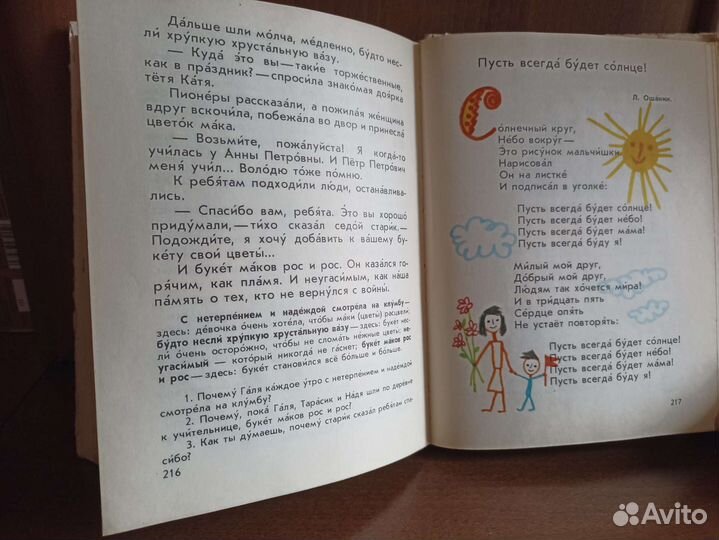 Да́льше шли мо́лча, ме́дленно, бу́дто нес-
ли́ хру́пкую хруста́льную ва́зу.
— Куда́ э́то вы — таки́е торже́ственные,
как в пра́здник? — спроси́ла знако́мая доя́рка
тётя Ка́тя.
Пионе́ры рассказа́ли, а пожила́я же́нщина
вдруг вскочи́ла, побежа́ла во двор и принесла́
цвето́к ма́ка.
— Возьми́те, пожа́луйста! Я когда́-то
учи́лась у А́нны Петро́вны. И Пётр Петро́вич
меня́ учи́л... Воло́дю то́же по́мню.
К ребя́там подходи́ли лю́ди, остана́влива-
лись.
— Спаси́бо вам, ребя́та. Э́то вы хорошо́
приду́мали, — ти́хо сказа́л седо́й стари́к. —
Подожди́те, я хочу́ доба́вить к ва́шему бу-
ке́ту свои́ цветы́...
И буке́т ма́ков рос и рос. Он каза́лся
горя́чим, как пла́мя. И неугаси́мым, как на́ша
па́мять о тех, кто не верну́лся с войны́.
С нетерпе́нием и наде́ждой смотре́ла на клу́мбу —
здесь: де́вочка о́чень хоте́ла, что́бы ма́ки (цветы́) расцвели́;
бу́дто несли́ хру́пкую хруста́льную ва́зу — здесь: буке́т нес-
ли́ о́чень осторо́жно, что́бы не слома́ть не́жные цветы́; не-
угаси́мый — кото́рый никогда́ не га́снет; буке́т ма́ков рос
и рос — здесь: буке́т станови́лся всё бо́льше и бо́льше.
1. Почему́ Га́ля ка́ждое у́тро с нетерпе́нием и наде́ждой
смотре́ла на клу́мбу?
2. Почему́, пока́ Га́ля, Тара́сик и На́дя шли по дере́вне
к учи́тельнице, буке́т ма́ков рос и рос?
3. Как ты ду́маешь, почему́ стари́к сказа́л ребя́там спа-
си́бо?
216
Пусть всегда́ бу́дет со́лнце!
Л. Оша́нин.
Со́лнечный круг,
Не́бо вокру́г —
Э́то рису́нок мальчи́шки.
Нарисова́л
Он на листке́
И подписа́л в уголке́:
Пусть всегда́ бу́дет со́лнце!
Пусть всегда́ бу́дет не́бо!
Пусть всегда́ бу́дет ма́ма!
Пусть всегда́ бу́ду я!
Ми́лый мой друг,
До́брый мой друг,
Лю́дям так хо́чется ми́ра!
И в три́дцать пять
Се́рдце опя́ть
Не устаёт повторя́ть:
Пусть всегда́ бу́дет со́лнце!
Пусть всегда́ бу́дет не́бо!
Пусть всегда́ бу́дет ма́ма!
Пусть всегда́ бу́ду я!
217
Avito